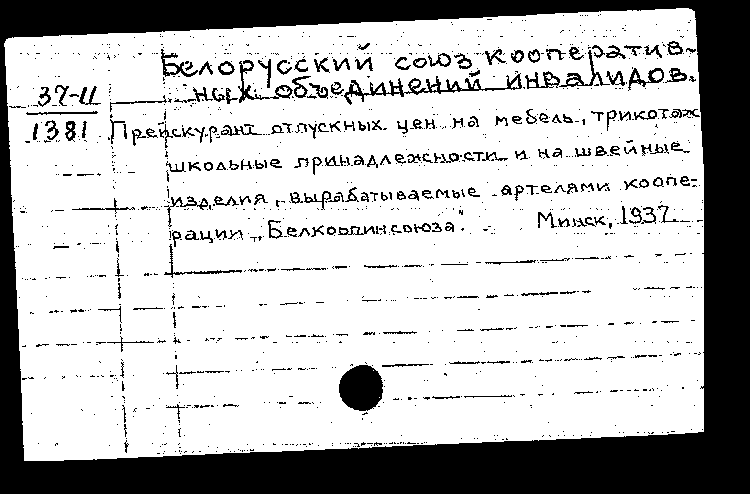 Белорусский союз кооператив-
ных объединений инвалидов.
37-11
1381
Прейскурант отпускных цен на мебель, трикотаж
школьные принадлежности и на швейные
изделия, вырабатываемые артелями коопе-
рации „Белкоопинсоюза". Минск, 1937.